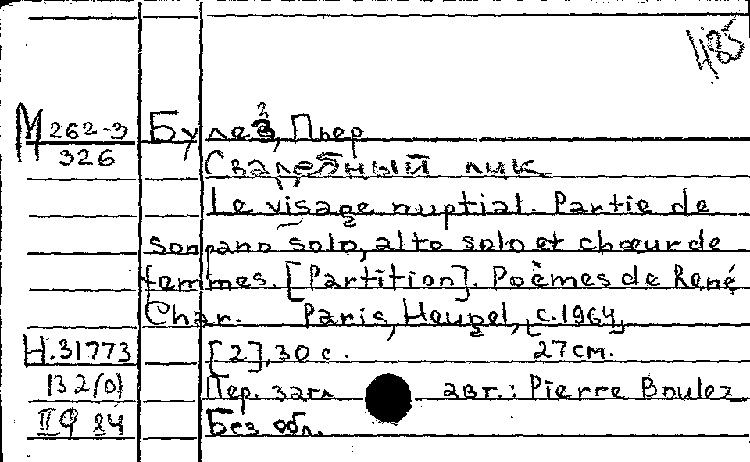 485
М 262-3 Булез, Пьер
326 Свадебный лик
Le visage nuptial. Partie de
soprano solo, alto solo et chœur de
femmes. [Partition]. Poèmes de René
Char. Paris, Heugel, [c.1964]
Н.31773 [2], 30 с. 27 см.
132(0) Пер. загл. авт.: Pierre Boulez
IIФ 84 Без обл.